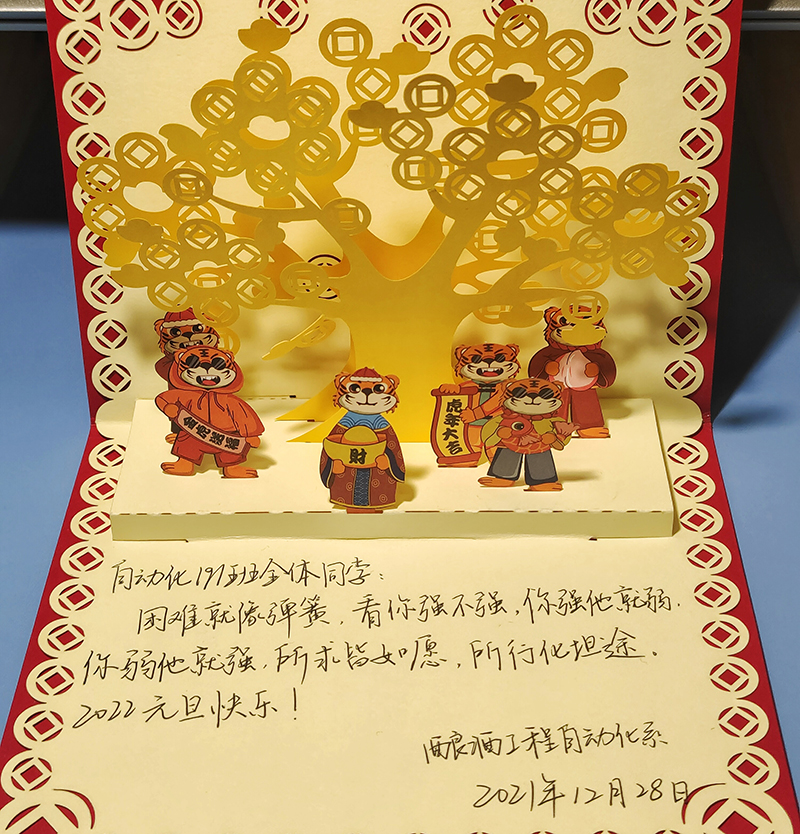 虎年大吉
財
自动化191班全体同学:
困难就像弹簧,看你强不强,你强他就弱.
你弱他就强,所求皆如愿,所行化坦途.
2022元旦快乐!
酿酒工程自动化系
2021年12月28日